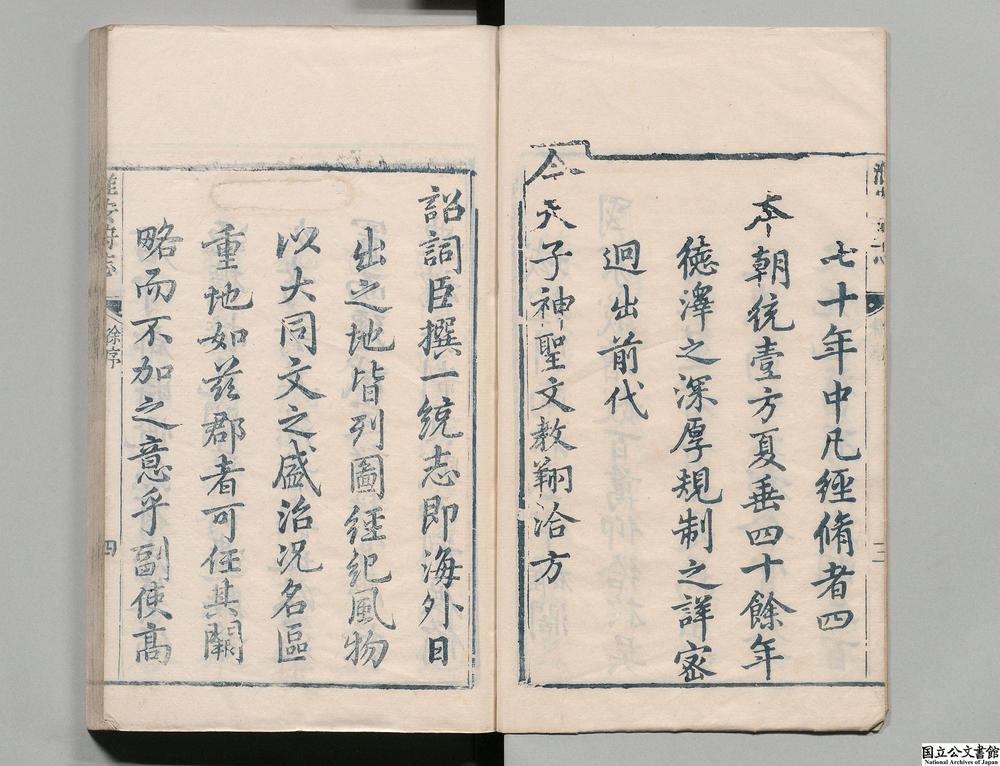 七十年中凡經脩者四
本朝統壹方夏垂四十餘年
德澤之深厚規制之詳密
迥出前代
今天子神聖文教翔洽方
詔詞臣撰一統志即海外日
出之地皆列圖經紀風物
以大同文之盛治况名區
重地如茲郡者可任其闕
略而不加之意乎副使高
淮安府志
徐序
四
国立公文書館
National Archives of Japan